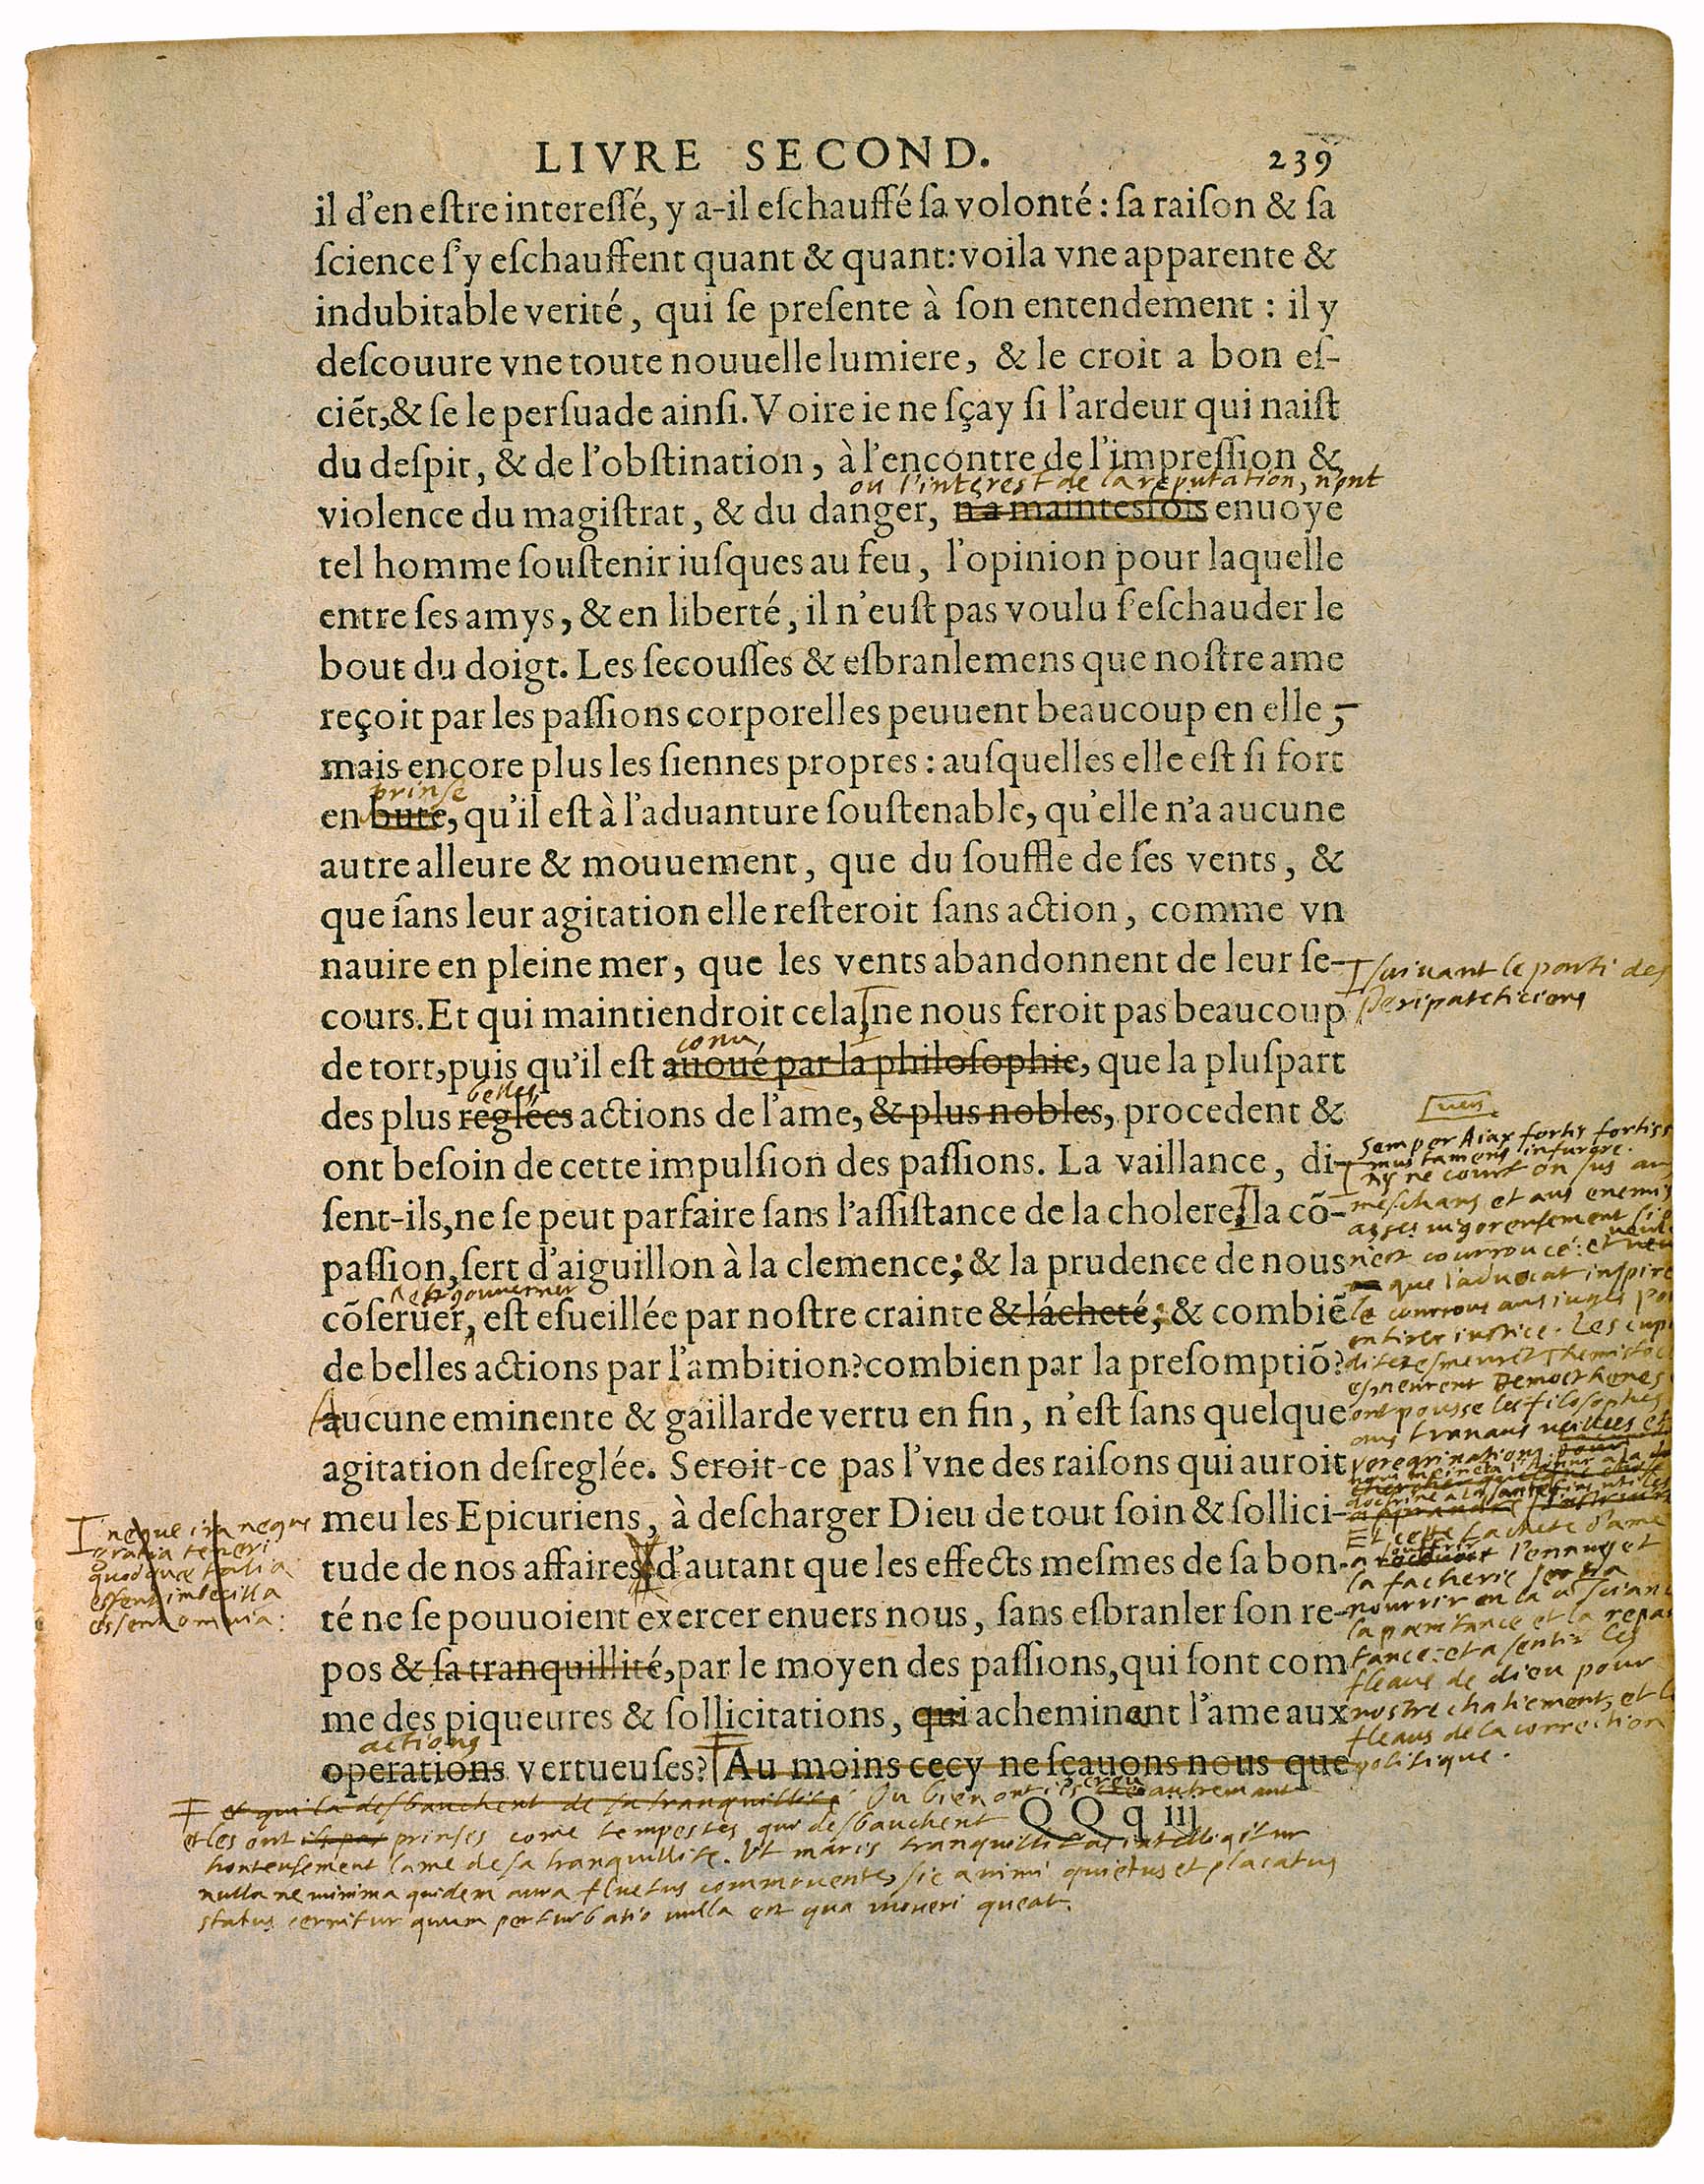 LIVRE SECOND. 239
il d'en eſtre intereſſé, y a-il eſchauffé ſa volonté : ſa raiſon & ſa
ſcience ſ'y eſchauffent quant & quant: voila vne apparente &
indubitable verité, qui ſe preſente à ſon entendement : il y
deſcouure vne toute nouuelle lumiere, & le croit a bon eſ-
ciẽt,& ſe le perſuade ainſi. Voire ie ne ſçay ſi l'ardeur qui naiſt
du deſpit, & de l'obſtination, à l'encontre de l'impreſſion &
ou l'interest de la reputation, n'ont
violence du magiſtrat, & du danger, n'a maintesfois enuoyé
tel homme ſouſtenir iuſques au feu, l'opinion pour laquelle
entre ſes amys, & en liberté, il n'euſt pas voulu ſ'eſchauder le
bout du doigt. Les ſecouſſes & eſbranlemens que noſtre ame
reçoit par les paſſions corporelles peuuent beaucoup en elle ,
mais encore plus les ſiennes propres : auſquelles elle eſt ſi fort
prinse
en bute, qu'il eſt à l'aduanture ſouſtenable, qu'elle n'a aucune
autre alleure & mouuement, que du ſouffle de ſes vents, &
que ſans leur agitation elle reſteroit ſans action, comme vn
nauire en pleine mer, que les vents abandonnent de leur ſe-
cours. Et qui maintiendroit cela ne nous feroit pas beaucoup
conu
de tort, puis qu'il eſt auoué par la philoſophie, que la pluſpart
belles
des plus reglées actions de l'ame, & plus nobles, procedent &
ont beſoin de cette impulſion des paſſions. La vaillance, di-
ſent-ils, ne ſe peut parfaire ſans l'aſſiſtance de la cholere, la cõ-
paſſion, ſert d'aiguillon à la clemence; & la prudence de nous
et gouverner
cõſeruer, eſt eſueillée par noſtre crainte & lácheté; & combiẽ
de belles actions par l'ambition? combien par la preſomptiõ?
Aucune eminente & gaillarde vertu en fin, n'eſt ſans quelque
agitation deſreglée. Seroit-ce pas l'vne des raiſons qui auroit
meu les Epicuriens, à deſcharger Dieu de tout ſoin & ſollici-
tude de nos affaires d'autant que les effects meſmes de ſa bon-
té ne ſe pouuoient exercer enuers nous, ſans eſbranler ſon re-
pos & ſa tranquillité, par le moyen des paſſions, qui ſont com
me des piqueures & ſollicitations, qui acheminant l'ame aux
actions
operations vertueuſes? Au moins cecy ne ſçauons nous que
QQq iij
suivant le parti des
Peripateticiens
vers
Semper Aiax fortis fortiss
mus tamen in furore.
Ny ne court on sus au
meschans et aus enemis
asses vigoreusement si
n'est courroucé: et
que l'advocat inspire
le courrous aus iuges po
en tirer iustice. Les cup
esmeurent Demosthenes
ont pousse les filosophes
aus travaus veillees et
peregrinations
Et cette lachete d'ame
a l'ennuy et
la facherie
nourrir en la
la pœnitance et la repan
tance: et a sentir les
fleaus de dieu pour
nostre chatiement, et l
fleaus de la correction
politique.
neque ira neque
gratia teneri
quod quæ talia
essent imbecilla
essent omnia:
et qui la desbauchent de sa tranquillite. Ou bien ont ils creu autremant
et les ont prinses come tempestes qui desbauchent
honteusement lame de sa tranquillite. Ut maris tranquillitas intelligitur
nulla ne minima quidem aura fluctus commovente, sic animi quietus et placatus
status cernitur quum perturbatio nulla est qua moueri queat.